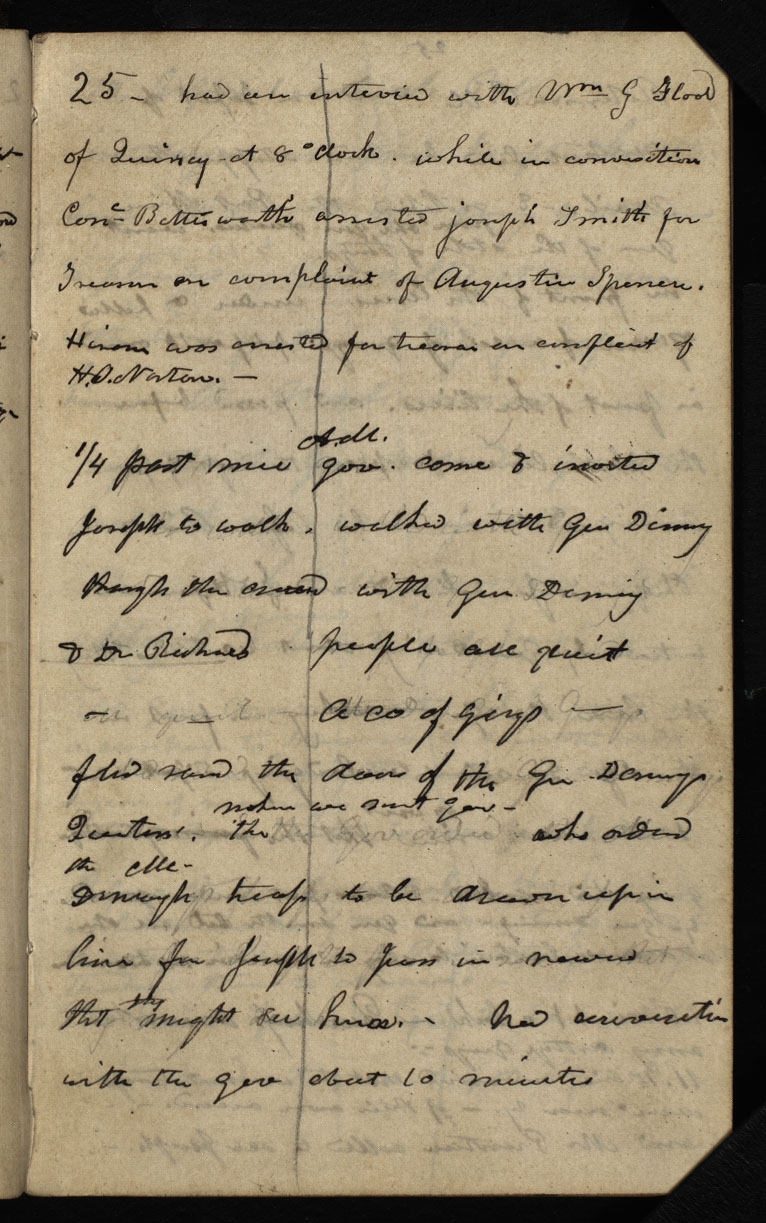 25 - had an interview with Wm G Flood
of Quincy at 8 o clock . while in conversation
Conc Bettisworth arrested joseph Smith for
Treason on complaint of Augustine Spencer.
Hiram was arrested for treason on complaint of
H. O. Norton. —
A.M.
1/4 past nine gov. came & invited
Joseph to walk . walked with Gen Deming
through the crowd with Gen Deming
& Dr Richards people all quiet
A co of Greys —
filed round the doors of the Gen Demings
where we sent gov -
Quarters. the who ordered
the Mc-
Donough troop to be drawn up in
line for Joseph to pass in review
that they might see him. - had conversation
with the gov about 10 minutes